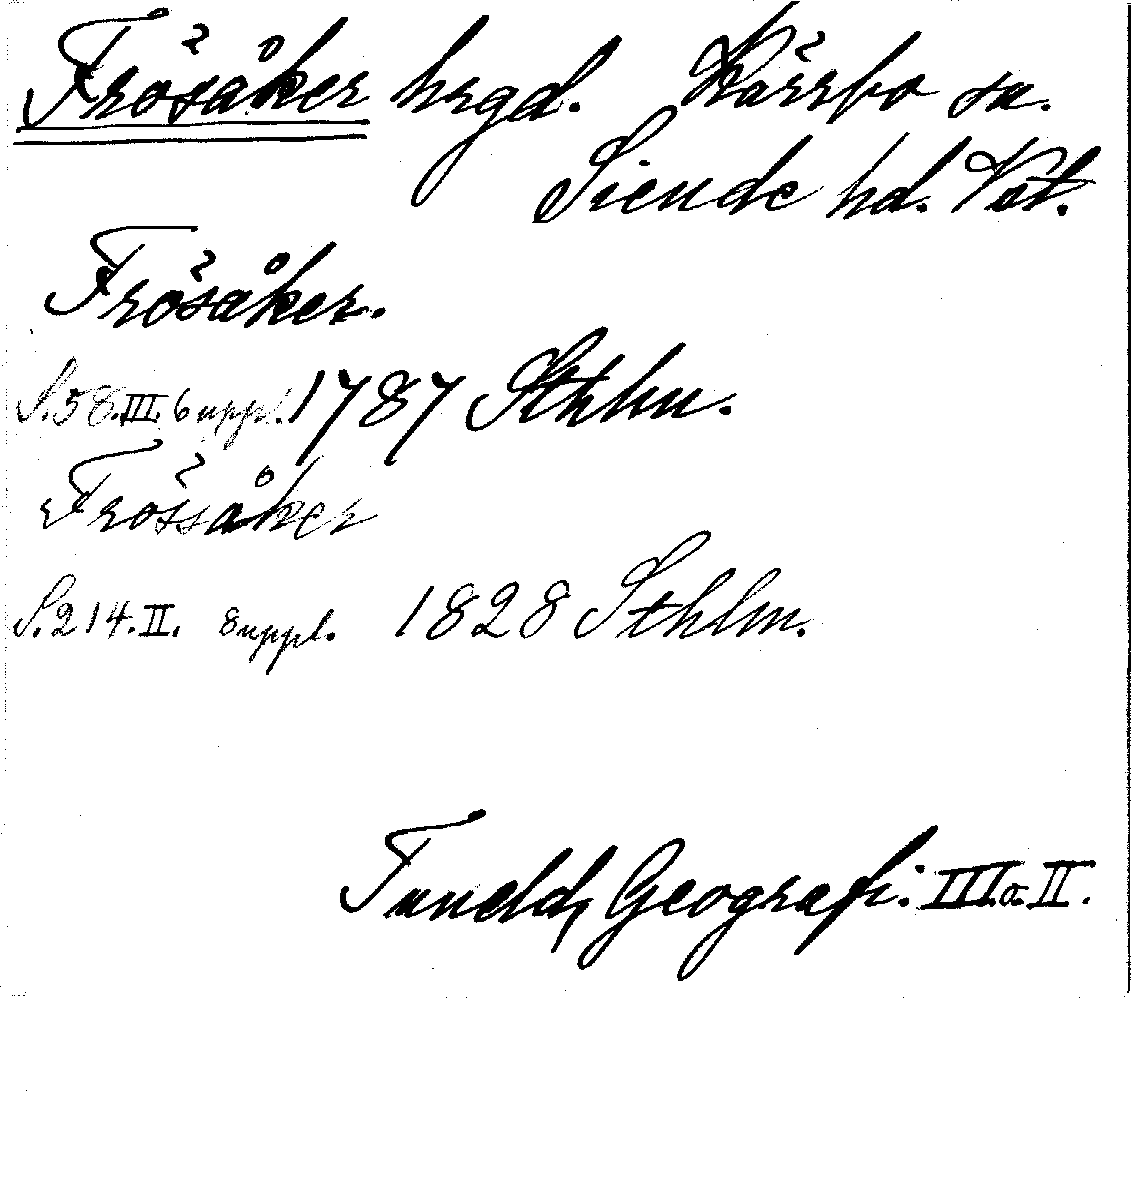 Frösåker hrgd. Kärrbo sn.
Siende hd. Vstl.
Frösåker.
S. 58. III. 6 uppl. 1787 Sthlm.
Frössåker
S. 214. II. 8 uppl. 1828 Sthlm.
Tuneld, Geografi. III. o. II.